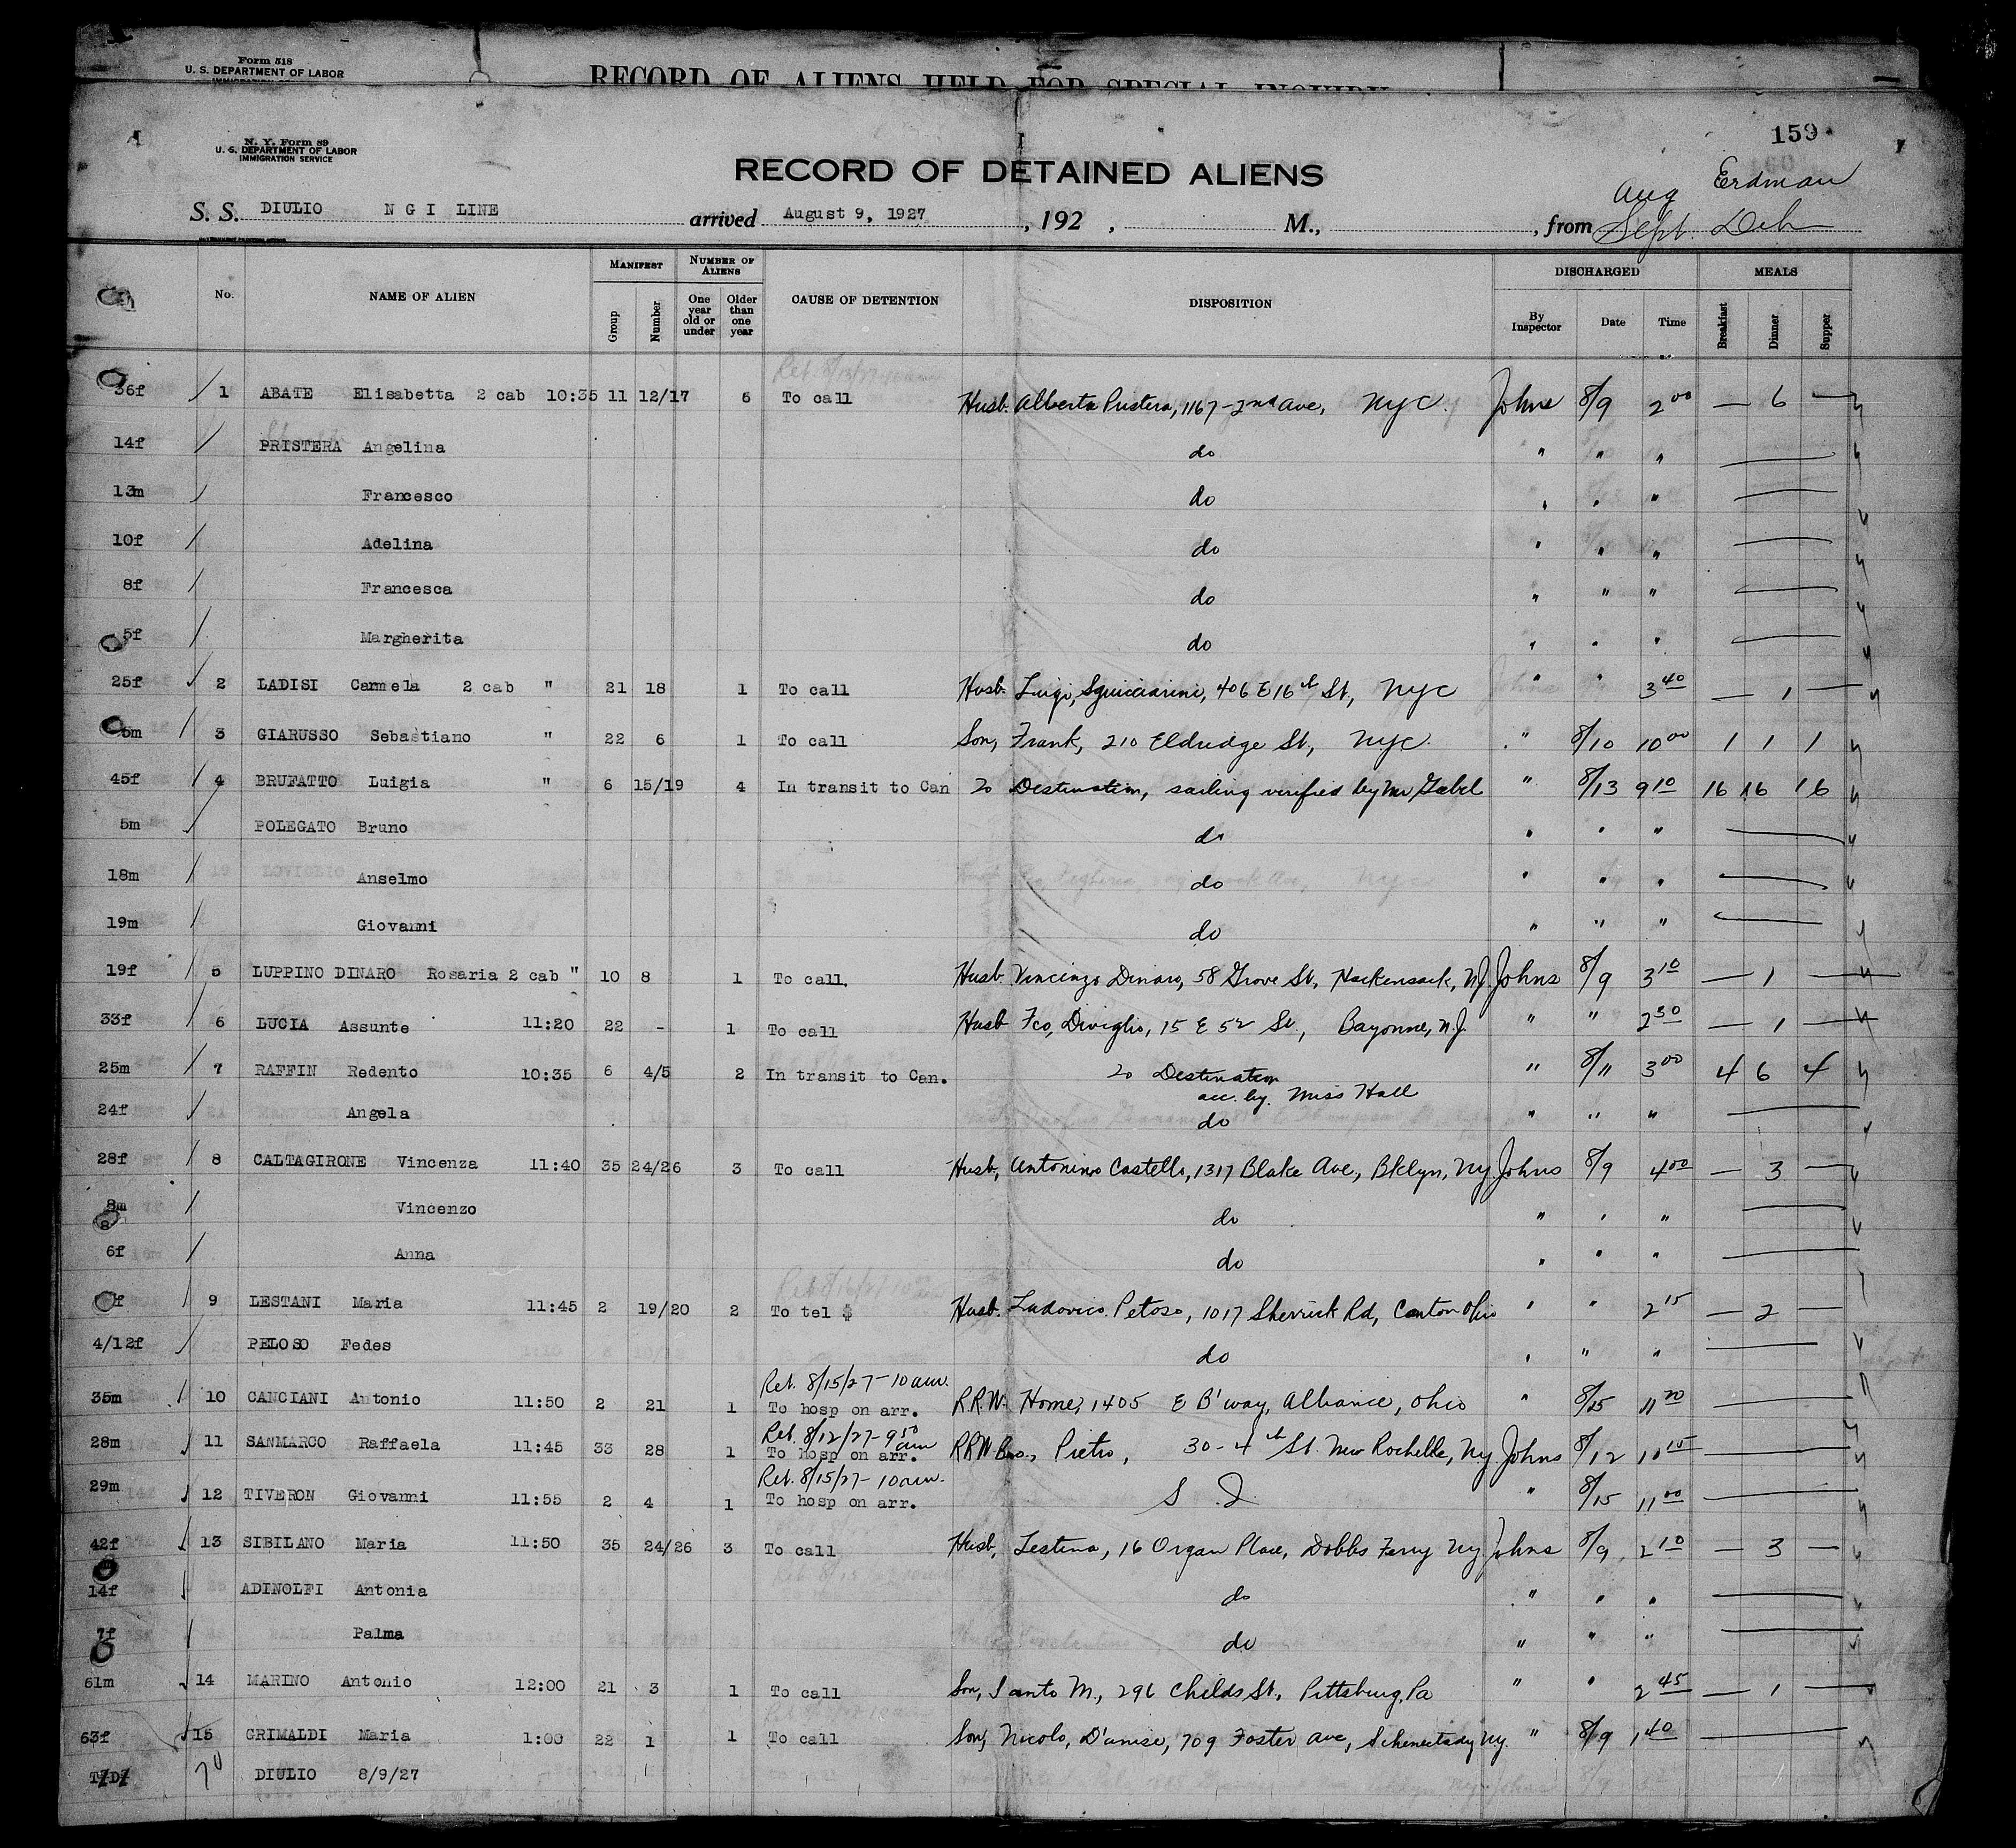 Form 518
U. S. DEPARTMENT OF LABOR
RECORD OF ALIENS HELD FOR SPECIAL INQUIRY
159
N. Y. Form 89
U. S. DEPARTMENT OF LABOR
IMMIGRATION SERVICE
RECORD OF DETAINED ALIENS
Aug Erdman
S. S. DIULIO N G I LINE arrived August 9, 1927, 192 , M., from Sept.
No. NAME OF ALIEN MANIFEST Group Number NUMBER OF ALIENS One year old or under Older than one year CAUSE OF DETENTION DISPOSITION DISCHARGED By Inspector Date Time MEALS Breakfast Dinner Supper
36f / 1 ABATE Elisabetta 2 cab 10:35 11 12/17 6 To call Husb. Alberto Pristera, 1167-2nd Ave, NYC. Johns 8/9 2 00 — 6 —
14f / PRISTERA Angelina do " " "
13m / Francesco do " " "
10f / Adelina do " " "
8f / Francesca do " " "
5f / Margherita do " " "
25f ✓ 2 LADISI Carmela 2 cab " 21 18 1 To call Husb. Luigi, Squicciarini, 406 E 16th St, NYC " " 3 40 — 1 —
5m / 3 GIARUSSO Sebastiano " 22 6 1 To call Son, Frank, 210 Eldridge St, NYC. " 8/10 10 00 1 1 1
45f / 4 BRUFATTO Luigia " 6 15/19 4 In transit to Can To Destination, sailing verified by Mr Gabel " 8/13 9 10 16 16 16
5m / POLEGATO Bruno do " " "
18m / Anselmo do " " "
19m / Giovanni do " " "
19f / 5 LUPPINO DINARO Rosaria 2 cab " 10 8 1 To call. Husb. Vincinzo Dinaro, 58 Grove St, Hackensack, NJ. Johns 8/9 3 10 — 1 —
33f / 6 LUCIA Assunte 11:20 22 - 1 To call Husb Fco, Diviglio, 15 E 52 St, Bayonne, N.J. " " 2 30 — 1 —
25m / 7 RAFFIN Redento 10:35 6 4/5 2 In transit to Can. To Destination " 8/11 3 00 4 6 4
acc. by. Miss Hall
24f / Angela do " " "
28f / 8 CALTAGIRONE Vincenza 11:40 35 24/26 3 To call Husb, Antonino Castello, 1317 Blake Ave, Bklyn, NY Johns 8/9 4 00 — 3 —
8m / Vincenzo do " " "
6f / Anna do " " "
f / 9 LESTANI Maria 11:45 2 19/20 2 To tel $ Husb. Ludovico Peloso, 1017 Sherrick Rd, Canton Ohio " " 2 15 — 2 —
4/12f / PELOSO Fedes do " " "
Ret. 8/15/27-10 am.
35m / 10 CANCIANI Antonio 11:50 2 21 1 To hosp on arr. R.R.W. Home, 1405 E B'way, Alliance, Ohio " 8/15 11 20
Ret. 8/12/27-9 50 am
28m / 11 SANMARCO Raffaela 11:45 33 28 1 To hosp on arr. RRW Bro., Pietro, 30-4th St. New Rochelle, NY. Johns 8/12 10 15
Ret. 8/15/27-10 am.
29m / 12 TIVERON Giovanni 11:55 2 4 1 To hosp on arr. S I " 8/15 11 00
42f / 13 SIBILANO Maria 11:50 35 24/26 3 To call Husb, Testino, 16 Organ Place, Dobbs Ferry NY Johns 8/9 2 10 — 3 —
14f / ADINOLFI Antonia do " " "
7f / Palma do " " "
61m ✓ 14 MARINO Antonio 12:00 21 3 1 To call Son, Santo M., 296 Childs St, Pittsburg, Pa " " 2 45 — 1 —
63f ✓ 15 GRIMALDI Maria 1:00 22 1 1 To call Son, Nicolo, D'anise, 709 Foster Ave, Schenectady NY. " 8/9 1 40
70 DIULIO 8/9/27